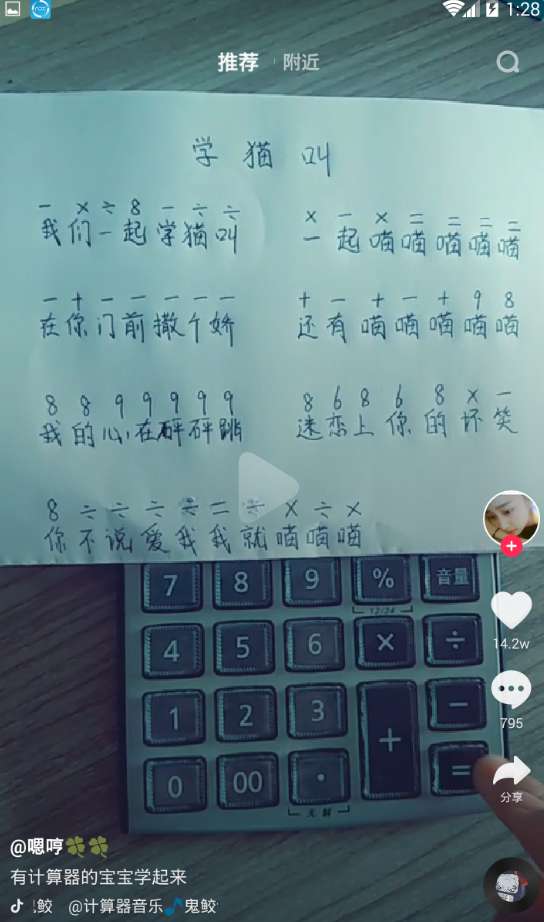 1:28
推荐 附近
学猫叫
- × ÷ 8 - ÷ ÷
我们一起学猫叫
× - × = = = =
一起喵喵喵喵喵
- + - - - - -
在你门前撒个娇
+ - + - + 9 8
还有喵喵喵喵喵
8 8 9 9 9 9 9
我的心在砰砰跳
8 6 8 6 8 × -
迷恋上你的坏笑
8 ÷ ÷ ÷ ÷ = ÷ × ÷ ×
你不说爱我我就喵喵喵
7 8 9 % 音量
12/24
4 5 6 × ÷
14.2w
1 2 3 + -
795
0 00 · =
分享
@嗯哼🍀🍀
有计算器的宝宝学起来
鲛 @计算器音乐🎵鬼鲛